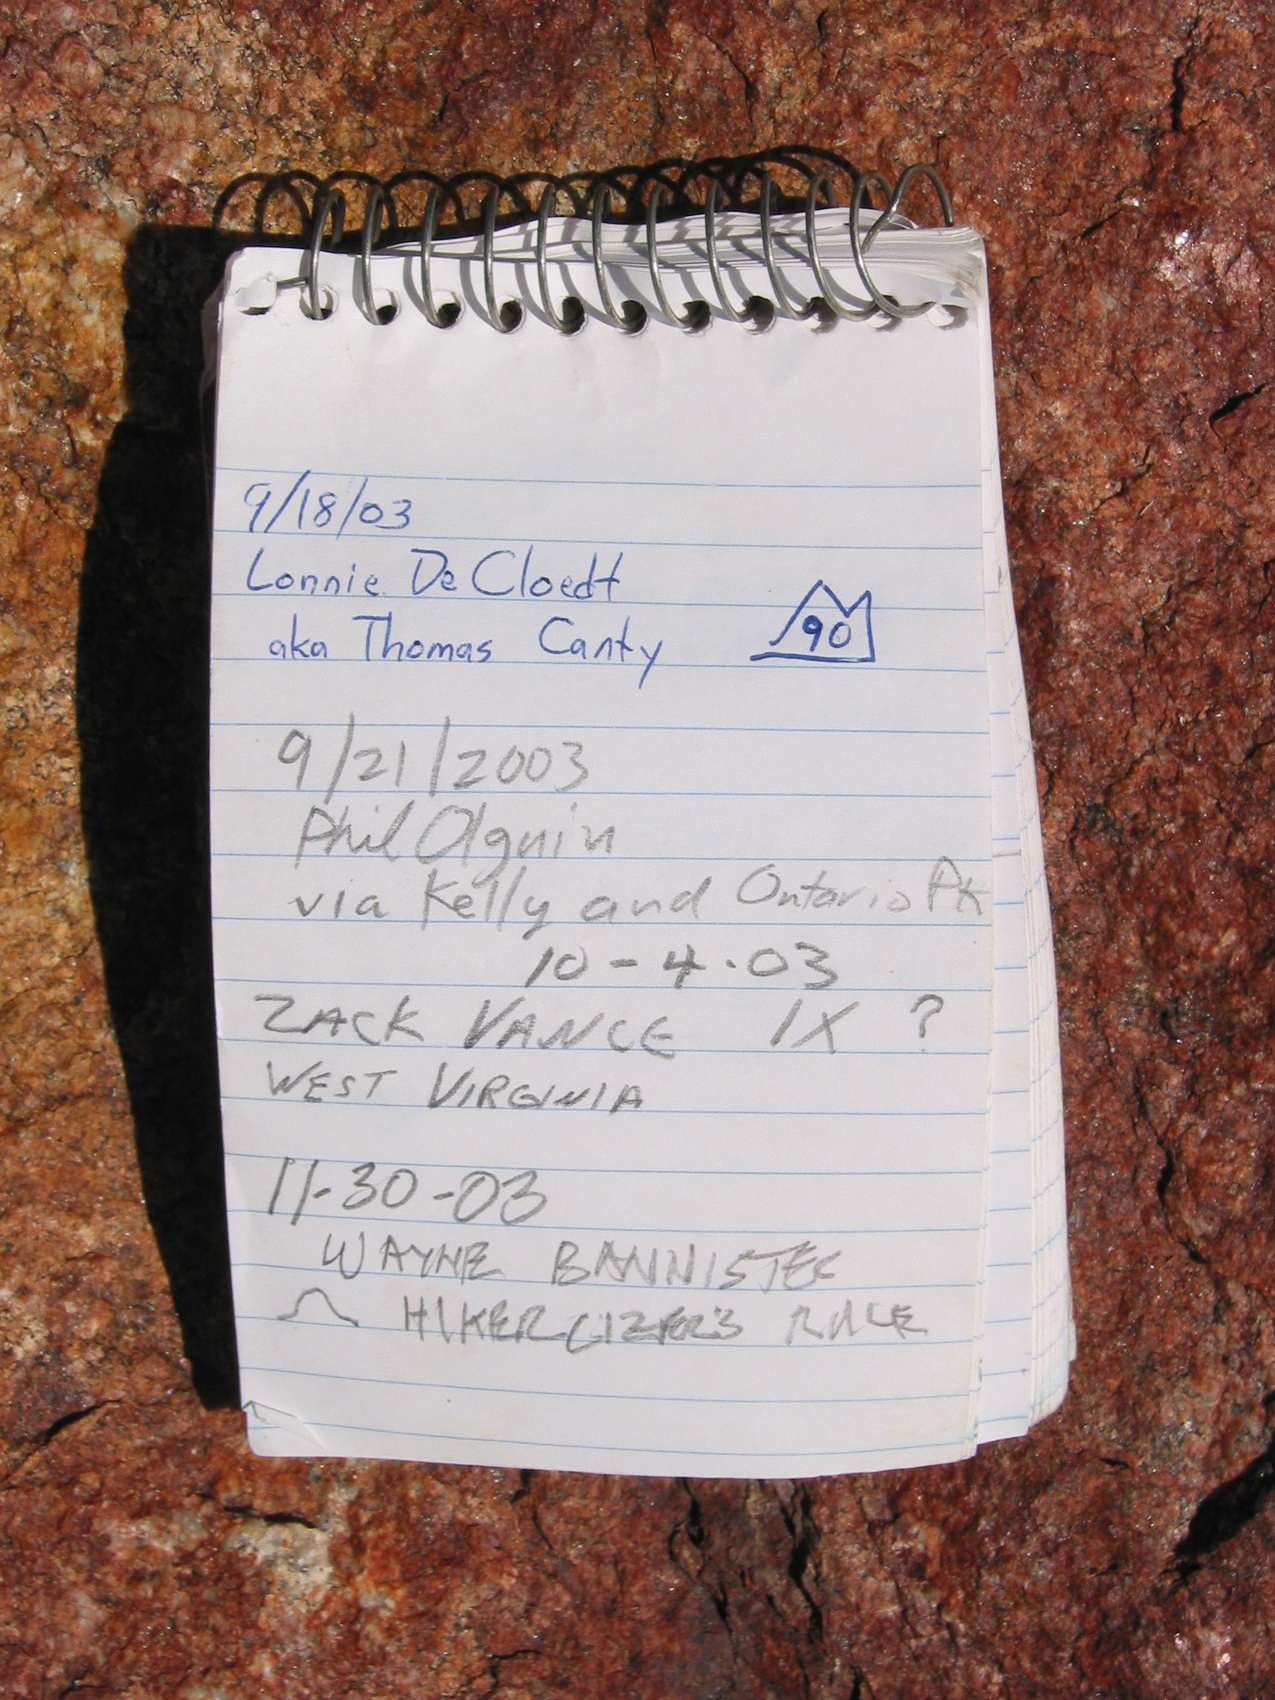 9/18/03
Lonnie De Cloedt
aka Thomas Canty 90
9/21/2003
Phil Olguin
via Kelly and Ontario Pk
10-4-03
ZACK VANCE 1X ?
WEST VIRGINIA
11-30-03
WAYNE BANNISTER
HIKERCIZER'S